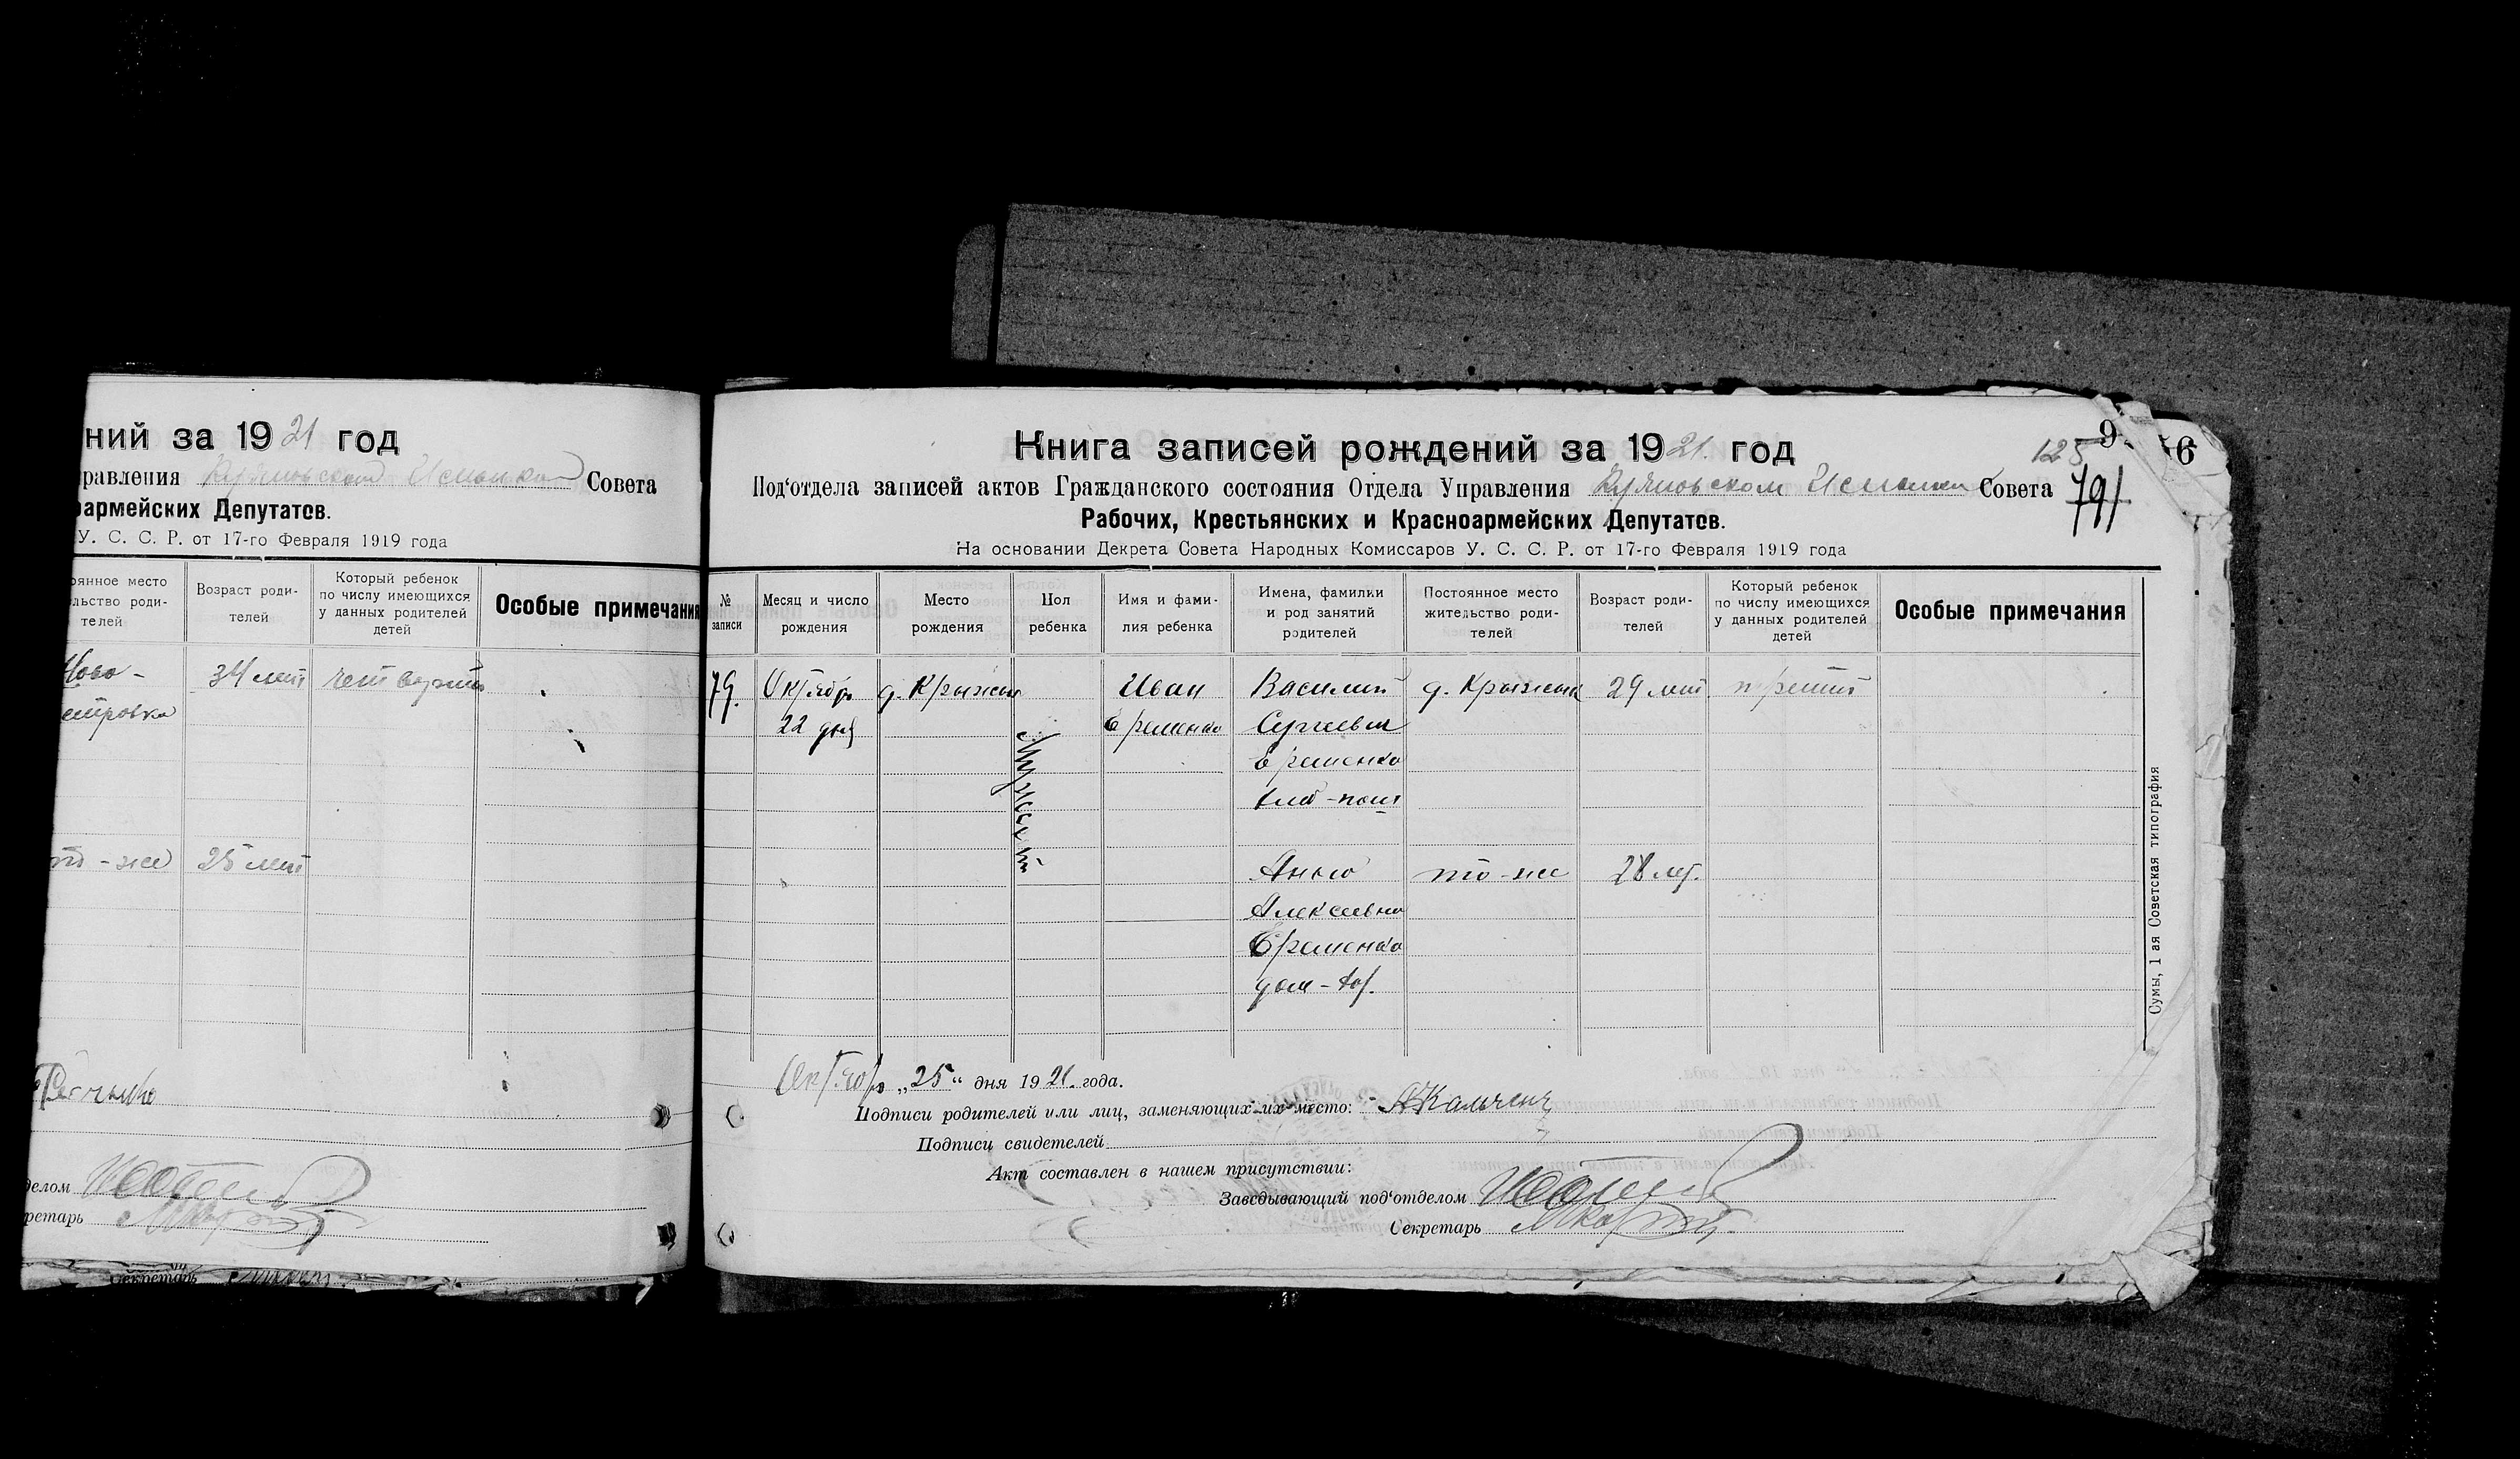 ний за 1921 год
равления Совета
армейских Депутатов.
У. С. С. Р. от 17-го Февраля 1919 года
янное место
льство роди-
телей
Возраст роди-
телей
Который ребенок
по числу имеющихся
у данных родителей
детей
Особые примечания
Ново-
34 лет
четвертый
то-же
25 лет
делом
ретарь
Секретарь
Книга записей рождений за 1921 год
125
9
6
791
Под'отдела записей актов Гражданского состояния Отдела Управления Совета
Рабочих, Крестьянских и Красноармейских Депутатов.
На основании Декрета Совета Народных Комиссаров У. С. С. Р. от 17-го Февраля 1919 года
№
записи
Месяц и число
рождения
Место
рождения
Пол
ребенка
Имя и фами-
лия ребенка
Имена, фамилии
и род занятий
родителей
Постоянное место
жительство роди-
телей
Возраст роди-
телей
Который ребенок
по числу имеющихся
у данных родителей
детей
Особые примечания
79.
Октябрь
22 дня
Мужской
Иван
Еременко
Василий
Сергеевич
Еременко
хлеб-паш
29 лет
третий
Анна
Алексеевна
Еременко
дом-хоз.
то-же
28 лет.
Октябрь „25“ дня 1921. года.
Подписи родителей или лиц, заменяющих их место:
Подписи свидетелей
Акт составлен в нашем присутствии:
Заведывающий под'отделом
Секретарь
Сумы, 1 ая Советская типография